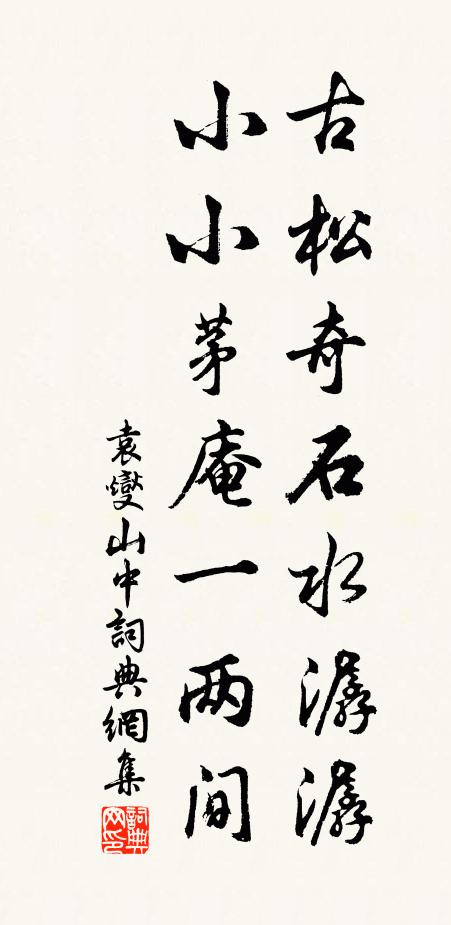 古松奇石水潺潺
小小茅庵一两间
袁燮山中詞典網集
詞典网印